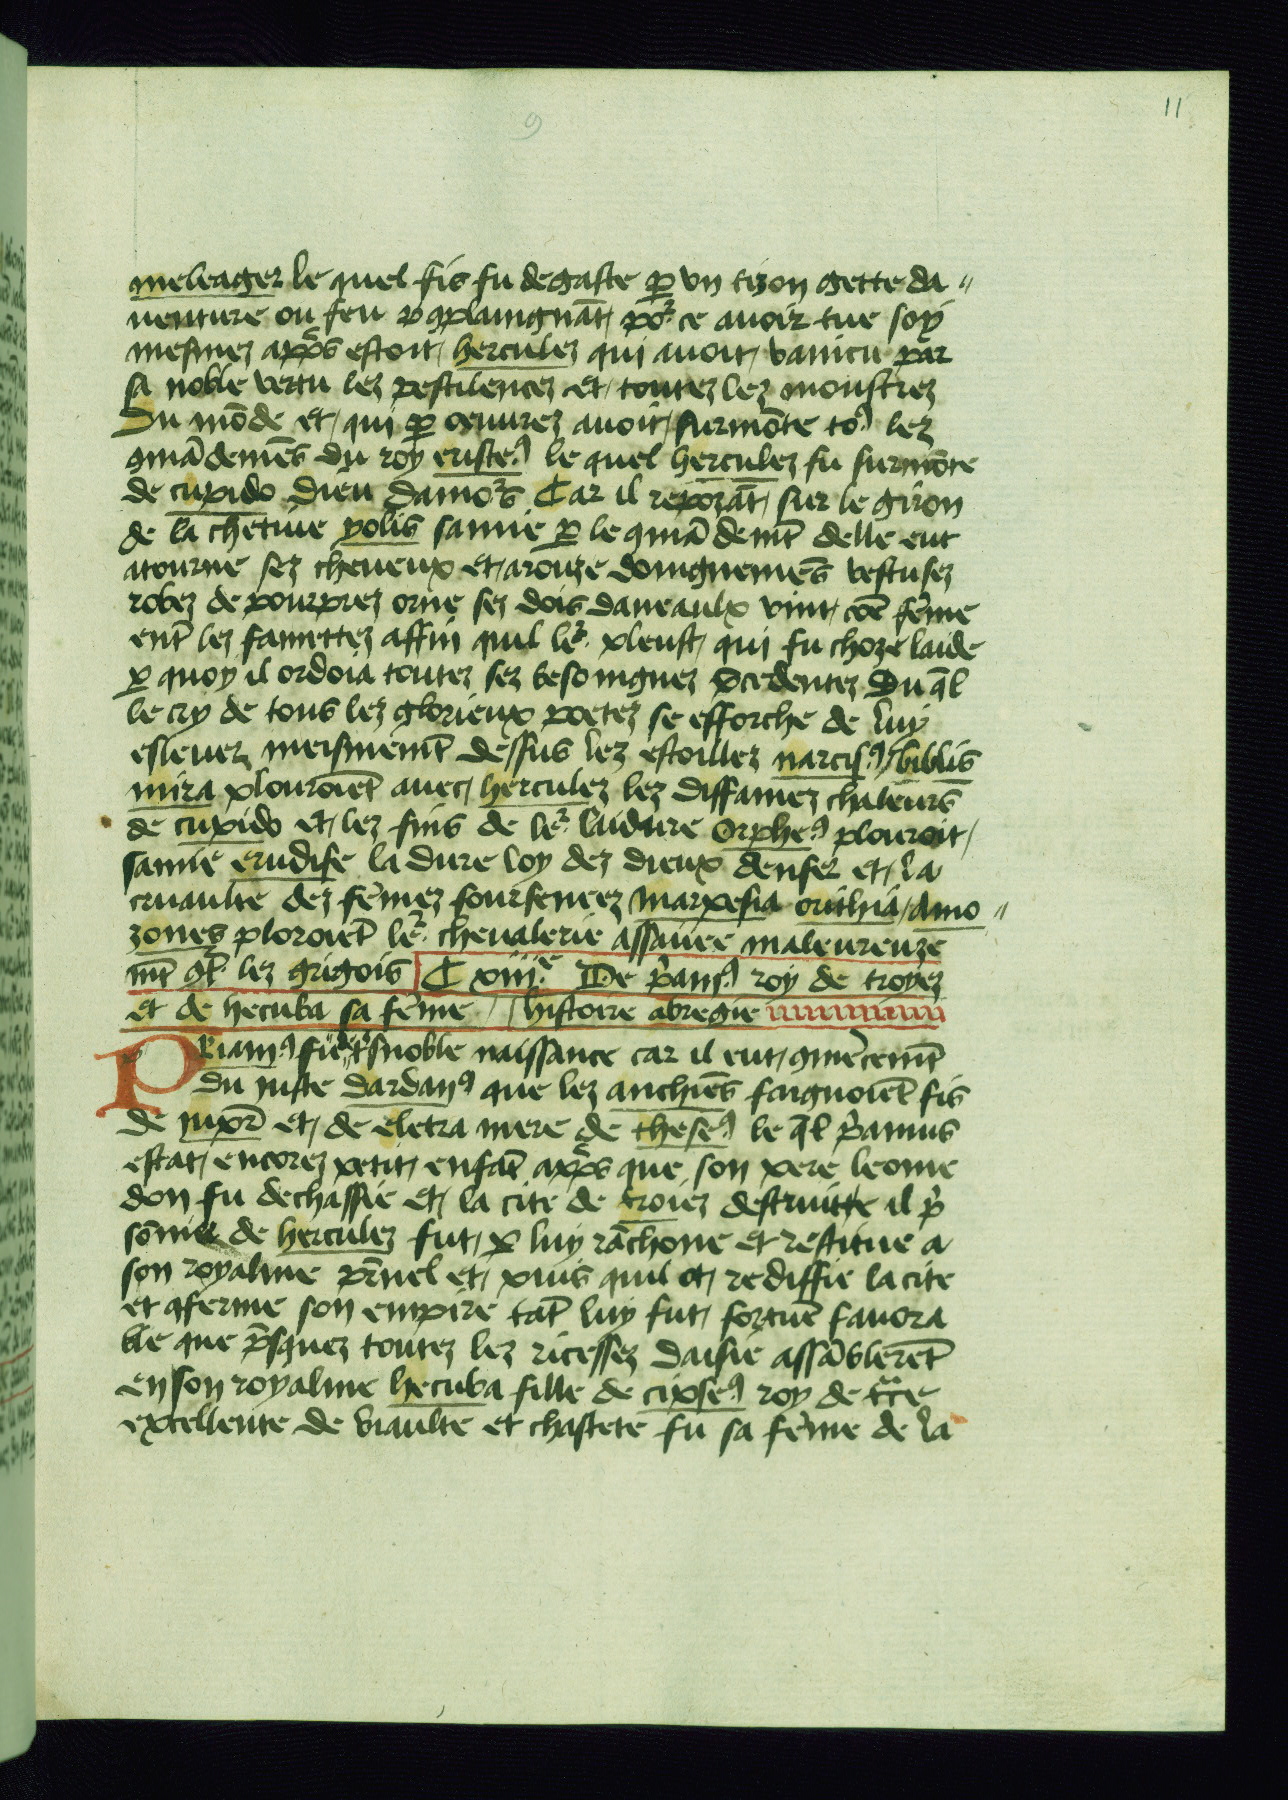 11
9
meleager le quel fis fu degaste ꝑ vn tizon gette da〃
uenture ou feu ꝯplaingnāt por ce auoir tue soy
mesmez appᵉs estoit hercules qui auoit vaincu par
sa noble vertu lez pestilencez et toutez lez monstrez
Du mōde et qui ꝑ oeuurez auoit surmōte toꝰ lez
ꝯmādemēs du roy eristeꝰ le quel herculez fu surmōte
de cupido dieu damors Car il repozāt sur le giron
de la chetiue yolis samie ꝑ le ꝯmādemt delle eut
atourne sez cheueux et arouze doingnemēs vestu sez
robez de pourprez orne sez dois daneaulx vint cōe fēme
ent̄ lez famettez affin quil ler pleust qui fu choze laide
ꝑ quoy il ordoia toutez sez besoingnez p̄cedentez Du ql̄
le cry de tous lez glorieux poetez se efforche de luy
esleuer meismemt̄ dessus lez estoillez narcisꝰ biblis
mira plouroiēt auec herculez lez diffamez chaleurs
de cupido et lez fins de ler laidure Orpheꝰ plouroit
samie erudise la dure loy dez dieux denfer et la
cruaulte dez fēmez foursenez Marpesia orithia Amo〃
zones ploroiēt ler cheualerie assauee maleureuze
mt̄ ꝯtr lez grigois C xiiiᵉ De p̄amꝰ roy de troyez
et de hecuba sa fēme histoire abregie
PRiamꝰ fu de trs noble naissance car il eut ꝯmēcemt̄
du juste dardanꝰ que lez anchiēs faignoiēt fis
de jupr̄ et de eletra mere de theseꝰ le ql̄ p̄amus
estat encorez petit enfāt appᵉs que son pere leome
don fu dechassie et la cite de troiez destruitte il p̄
sōnier de herculez fut ꝑ luy rāchone et restitue a
son royalme pr̄nel et puis quil ot rediffie la cite
et ꝯferme son empire tāt luy fut fortune fauora
ble que p̄squez toutez lez ricessez daisie assāblerēt
en son royalme hecuba fille de cipseꝰ roy de trᵃce
excellente de biaulte et chastete fu sa fēme de la